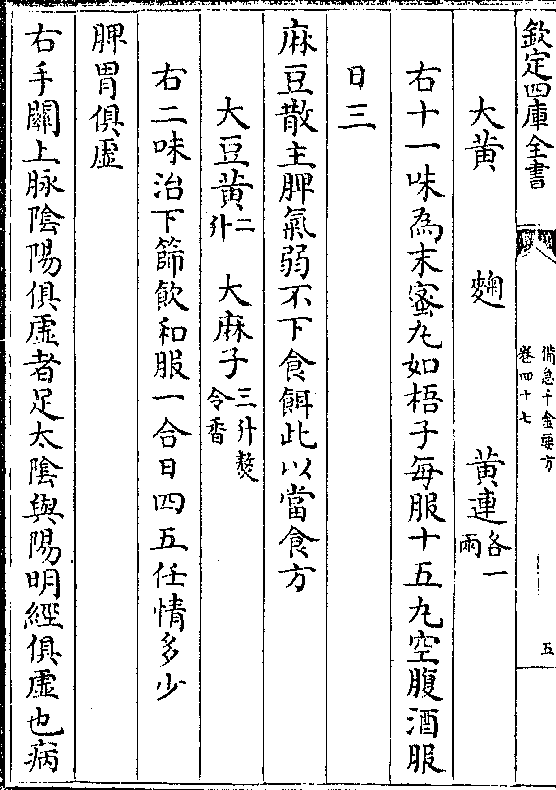 欽定四庫全書
備急千金要方
卷四十七
五
大黄 麹 黄連各一兩
右十一味為末蜜丸如梧子每服十五丸空腹酒服
日三
麻豆散主脾氣弱不下食餌此以當食方
大豆黄二升 大麻子三升熬令香
右二味治下篩飲和服一合日四五任情多少
脾胃俱虛
右手關上脉陰陽俱虛者足太陰與陽明經俱虛也病